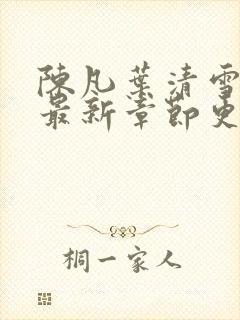 陳凡葉清雪
最新章節更
桐一家人